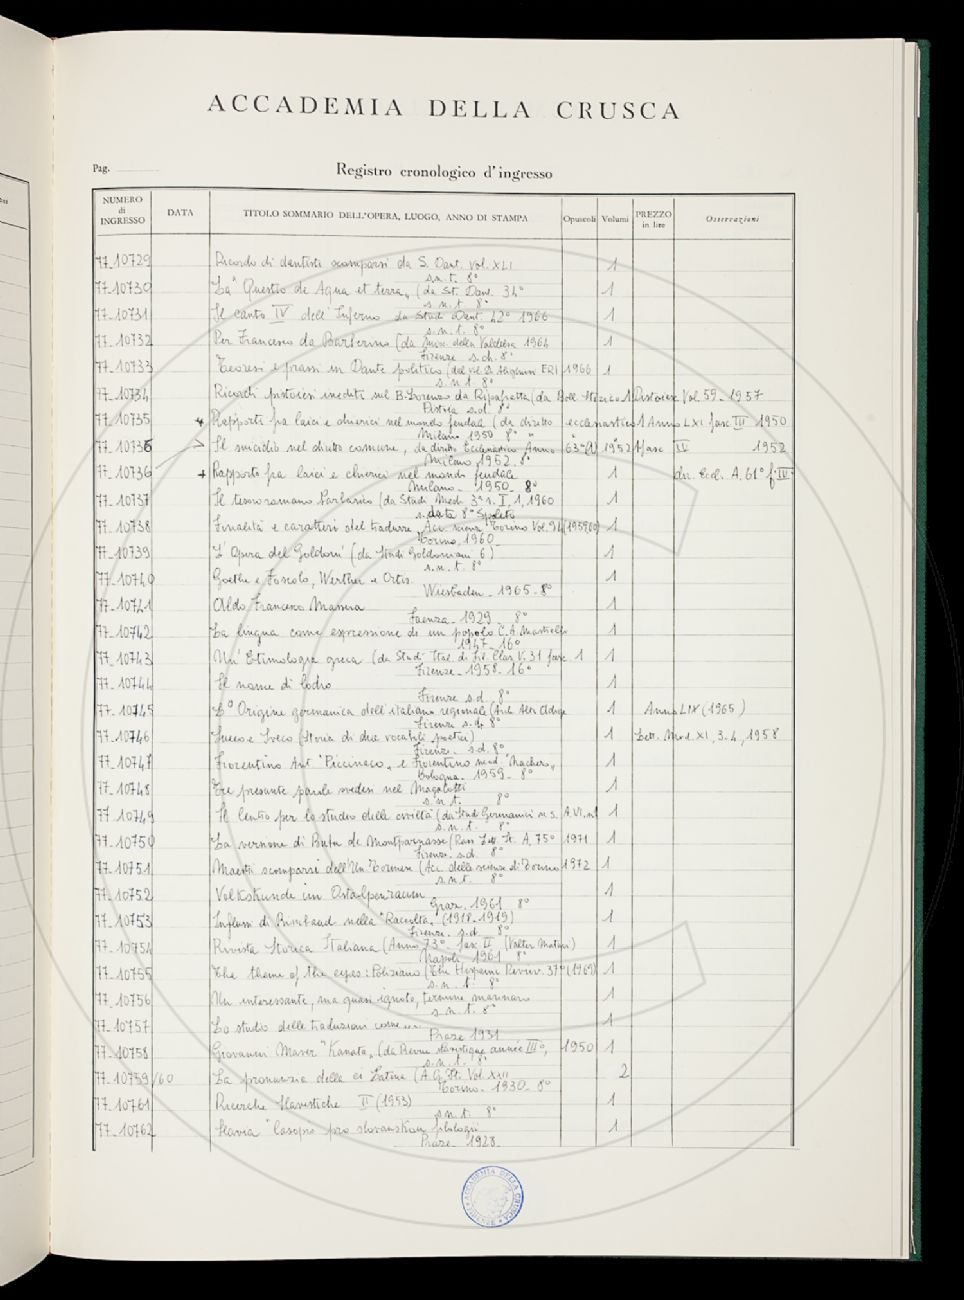 ACCADEMIA DELLA CRUSCA
Pag.
Registro cronologico d'ingresso
NUMERO di INGRESSO DATA TITOLO SOMMARIO DELL'OPERA, LUOGO, ANNO DI STAMPA Opuscoli Volumi PREZZO in lire Osservazioni
77_10729 Ricordo di dantisti scomparsi da S. Dant. Vol. XLI 1
s.n.t. 8°
77_10730 La "Questio de Aqua et terra" (da St. Dan. 34° 1
s.n.t. 8°
77_10731 Il canto IV dell'Inferno da Studi Dant. 42° 1966 1
s.n.t. 8°
77_10732 Per Francesco da Barberino (da della Valdelsa 1964 1
Firenze s.d. 8°
77_10733 Teoresi e prassi in Dante politico ERI 1966 1
s.n.t. 8°
77_10734 Ricordi pistoiesi inediti sul B. Lorenzo da Ripafratta (da Boll. Storico 1 Pistoiese Vol. 59_1957
Pistoia s.d. 8°
77_10735 + Rapporti fra laici e chierici nel mondo feudale (da diritto ecclesiastico 1 Anno LXI fasc III 1950
Milano 1950 8°
77_10736 Il suicidio nel diritto comune, da diritto Ecclesiastico Anno 63° 1952 1 fasc IV 1952
Milano 1952 8°
77_10736 + Rapporto fra laici e chierici nel mondo feudale 1 dir. Eccl. A. 61° f. IV
Milano_ 1950_ 8°
77_10737 Il tesoro romano barbarico (da Studi Med. 3ª s. I, 1, 1960 1
s. data 8° Spoleto
77_10738 Finalità e caratteri del tradurre Acc. Torino Vol. 94 (1959/60) 1
Torino 1960_
77_10739 L'Opera del Goldoni (da Studi Goldoniani 6) 1
s.n.t. 8°
77_10740 Goethe e Foscolo, Werther e Ortis 1
Wiesbaden_1965_8°
77_10741 Aldo Francesco Massera 1
Faenza_1929_8°
77_10742 La lingua come espressione di un popolo C. A. 1
1947_16°
77_10743 Un'Etimologia greca (da Studi Ital. di Fil. Clas. V. 31 fasc. 1 1
Firenze_1958_16°
77_10744 Il nome di 1
Firenze s.d. 8°
77_10745 L'Origine germanica dell'italiano regionale (Arch. Alto Adige 1 Anno LIX (1965)
Firenze s.d. 8°
77_10746 (Storia di due vocaboli poetici) 1 Lett. Mod. XI, 3_4, 1958
Firenze_ s.d. 8°
77_10747 Fiorentino Ant. e Fiorentino mod. 1
Bologna_ 1959_8°
77_10748 Tre presunte parole svedesi nel Magalotti 1
s.n.t. 8°
77_10749 Il Centro per lo studio della civiltà (da Studi Germanici n.s. A. VI, n. 1 1
s.n.t. 8°
77_10750 La versione di Bubu de Montparnasse (Rass. Lett. It. A. 75° 1971 1
Firenze_s.d. 8°
77_10751 Maestri scomparsi dell'Un. Torinese (Acc. delle scienze di Torino 1972 1
s.n.t. 8°
77_10752 Volkskunde im Ostalpenraum 1
Graz. 1961 8°
77_10753 Influssi di Rimbaud nella "Raccolta" (1918-1919) 1
Firenze. s.d. 8°
77_10754 Rivista Storica Italiana (Anno 73° fasc II (Walter Maturi) 1
Napoli 1961 8°
77_10755 The theme of the eyes: Poliziano (The Hispanic Review. 37° (1969) 1
s.n.t. 8°
77_10756 Un interessante, ma quasi ignoto, termine marinaro 1
s.n.t. 8°
77_10757 Lo studio delle traduzioni come ... 1
Praze 1931
77_10758 Giovanni Maver "Kanata" (da Revue slavistique année III°, 1950 1
s.n.t. 8°
77_10759/60 La pronunzia della Latina (A. G. It. Vol. XXII 2
Torino_1930_8°
77_10761 Ricerche Slavistiche II (1953) 1
s.n.t. 8°
77_10762 Slavia časopis pro slovanskou filologii 1
Praze_1928_
ACCADEMIA DELLA CRUSCA